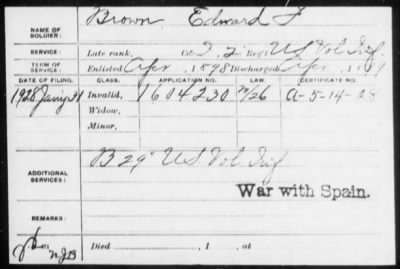 NAME OF SOLDIER: Brown Edward F
SERVICE: Late rank, Co. I. 2" Reg't US Vol Inf
TERM OF SERVICE: Enlisted Apr, 1898 Discharged Apr, 1899
DATE OF FILING. CLASS. APPLICATION NO. LAW. CERTIFICATE NO.
1928 Jan'y 31 Invalid, 1604230 7/26 A-5-14-28
Widow,
Minor,
ADDITIONAL SERVICES: B 29" US Vol. Inf
War with Spain.
REMARKS:
Died , 1 , at